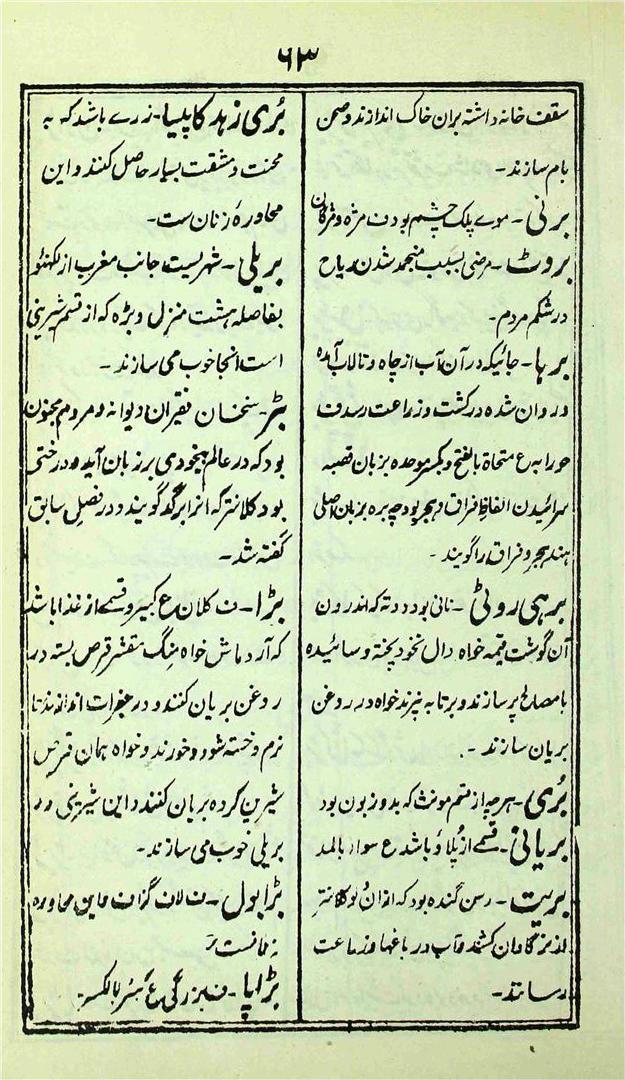 ۶۳
سقف خانه داشته بران خاک اندازند و صحن
بام سازند۔
برنی۔ موے پلک چشم بود ف مژه و مژگان
بروٹ۔ مرضی بسبب منجمد شدن ریاح
در شکم مردم۔
برہا۔ جائیکه در آن آب از چاه و تالاب آمده
و روان شده در کشت و زراعت رسد ف
بالفتح و بکسر موحده بزبان قصبه
سرائیدن الفاظ فراق و هجر بود چه بره بزبان اصلی
هند هجر و فراق را گویند۔
برہی روٹی۔ نانی بود دو ته که اندرون
آن گوشت قیمه خواه دال نخود پخته و سائیده
با مصالح پر سازند و بر تابه پزند خواه در روغن
بریان سازند۔
بُری۔ هرچه از قسم مونث که بد و زبون بود
بریانی۔ قسمے از پلاؤ باشد ع سواد بالمد
بریت۔ رسن گنده بود که ازان لو کلانتر
از نرگاوان کشند و آب در باغها و زراعت
رسانند۔
بُری زهد کا پیسا۔ زرے باشد که به
محنت و مشقت بسیار حاصل کنند و این
محاورهٔ زنان ست۔
بریلی۔ شهریست جانب مغرب از لکھنؤ
بفاصله هشت منزل و بڑه که از قسم شیرینی
است انجا خوب می سازند۔
بڑ۔ سخنان فقیران دیوانه و مردم مجنون
بود که در عالم بیخودی بر زبان آید و درختی
بود کلانتر که انرا برگد گویند و در فصل سابق
گفته شد۔
بڑا۔ ف کلان ع کبیر و قسمے از غذا باشد
که آرد ماش خواه منگ مقشر قرص بسته در
روغن بریان کنند و در جغرات اندازند تا
نرم و خسته شود و خورند و خواه همان قرص
شیرین کرده بریان کنند و این شیرینی در
بریلی خوب می سازند۔
بڑا بول۔ ف لاف گزاف و این محاوره
زنانست
بڑاپا۔ ف بزرگی ع کِبَر بالکسر۔